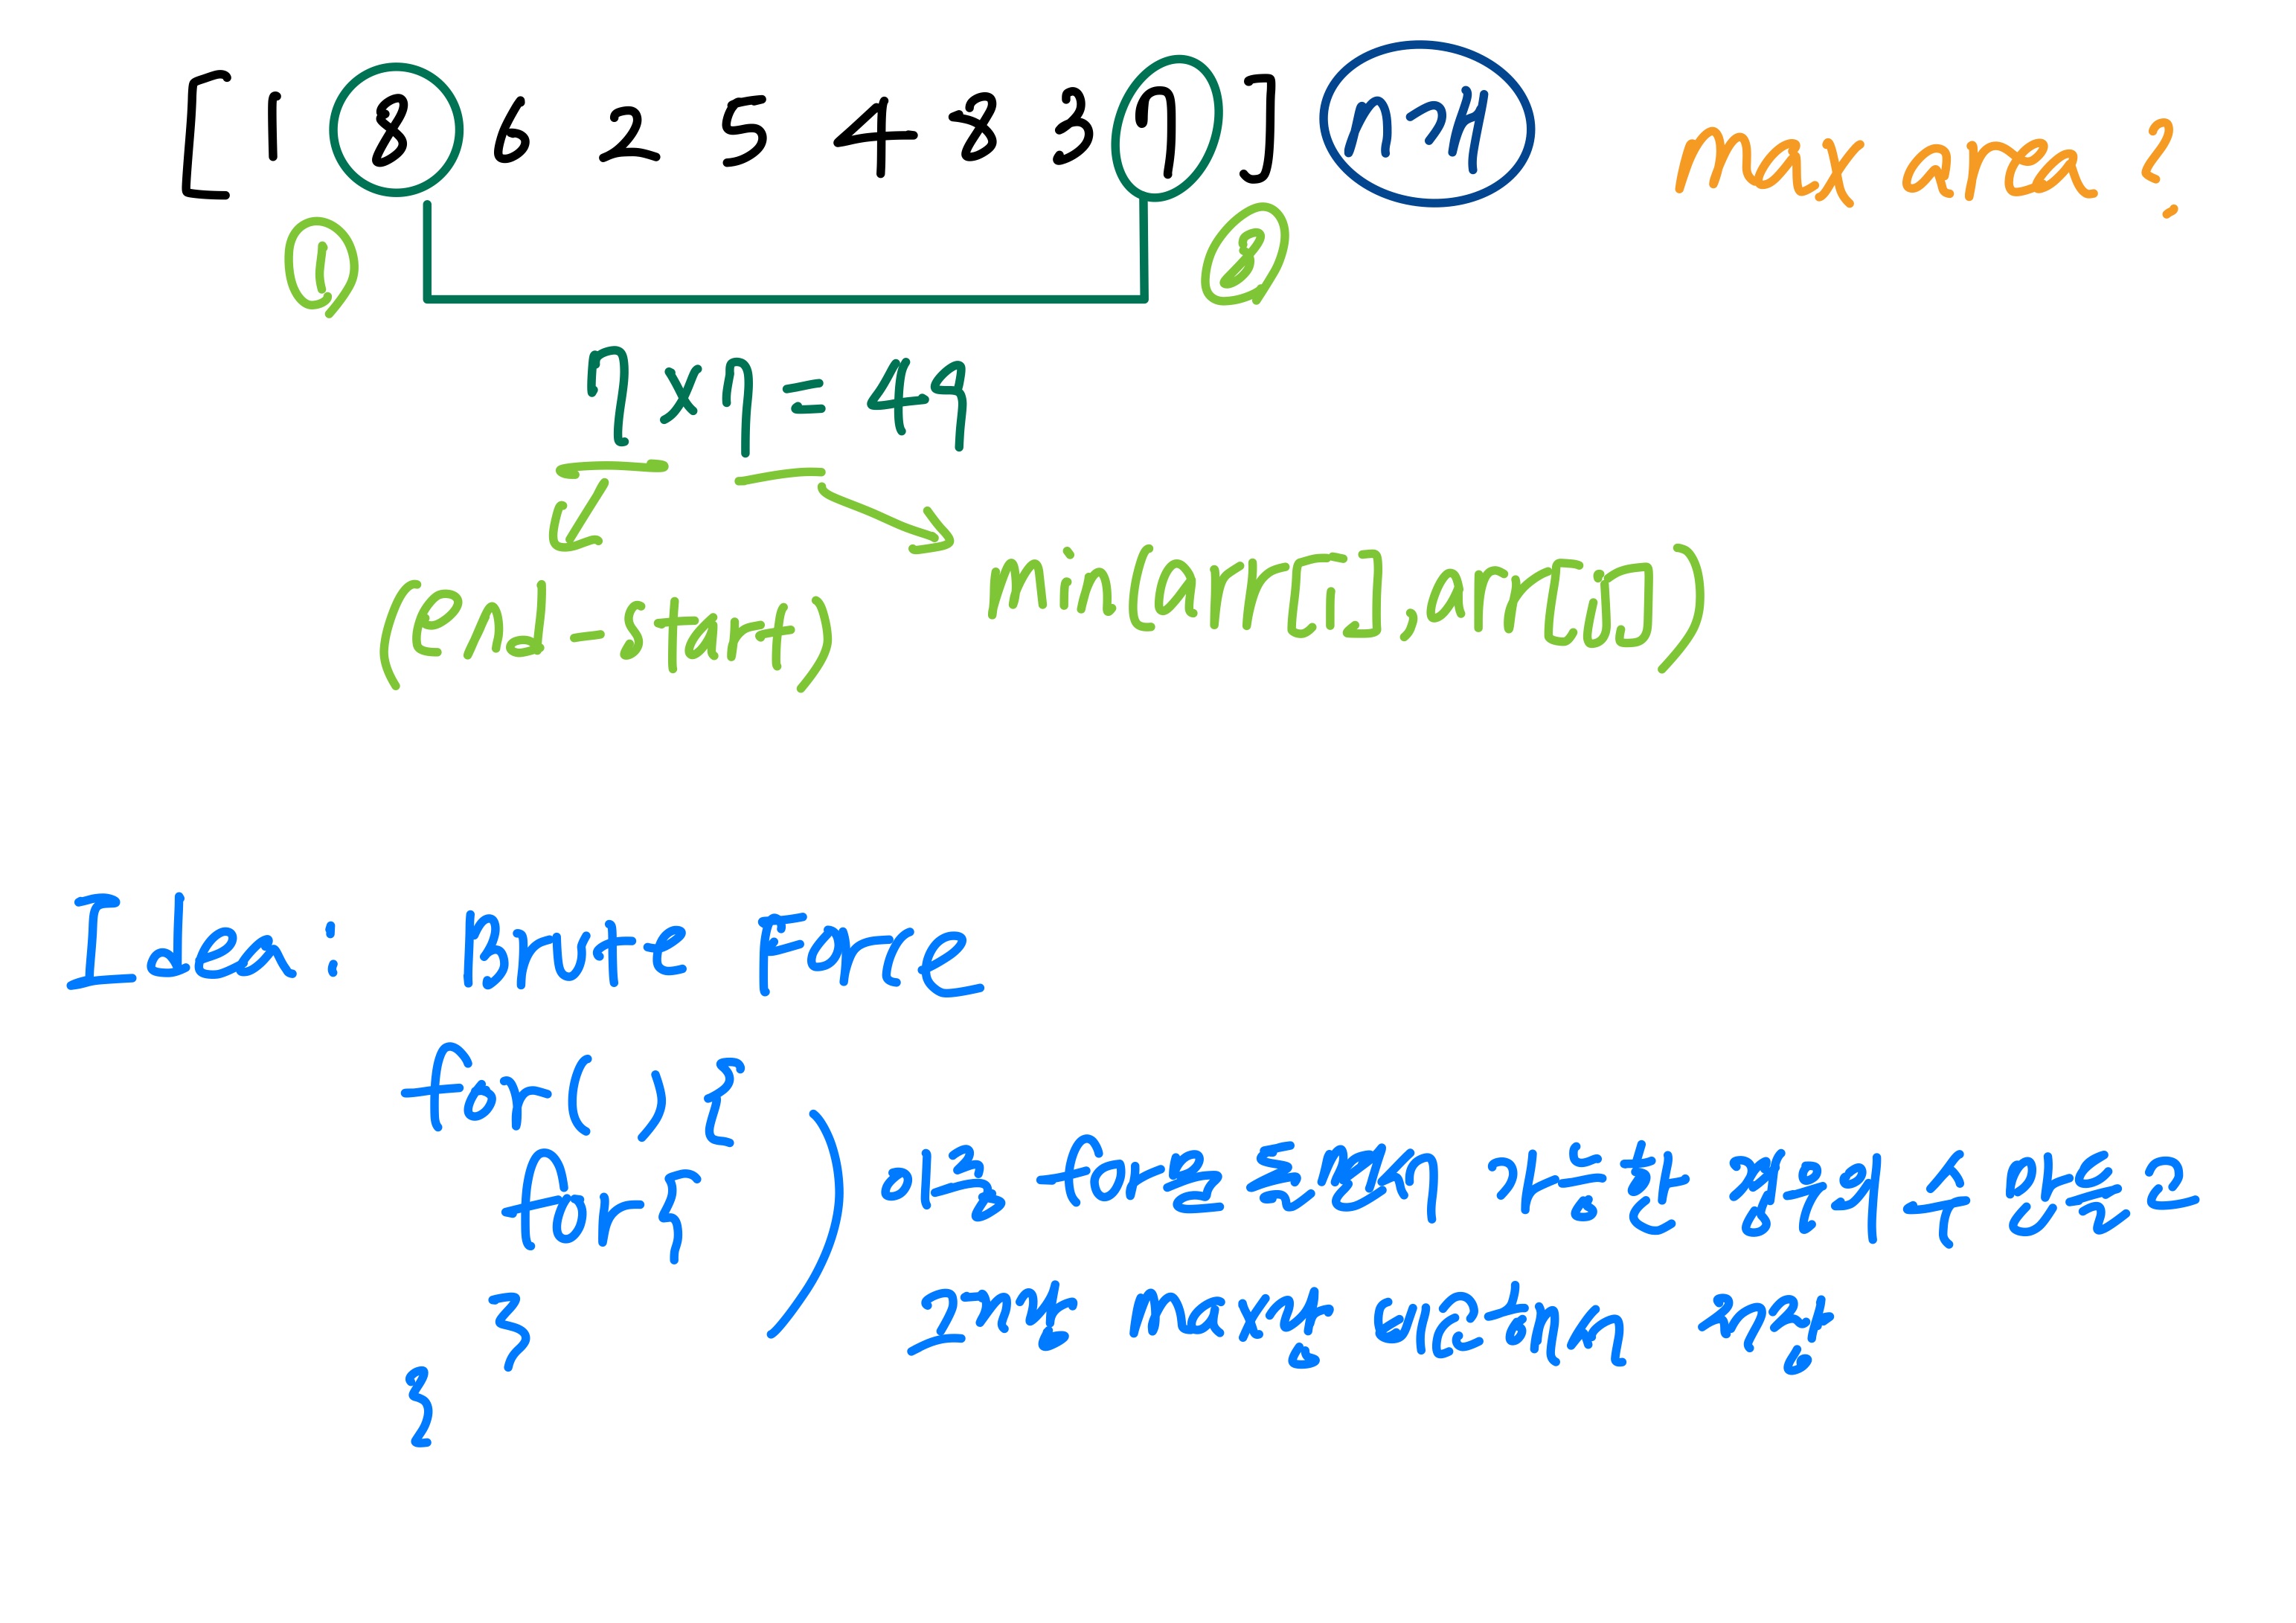 [ 1 8 6 2 5 4 8 3 7 ] 예시 max area ?
① ⑧
7 x 7 = 49
(end - start) min(arr[i], arr[j])
Idea : Brute Force
for( ) {
for {
이중 for문을 통해서 가능한 경우의 수 만들고
그때 max값 업데이트 해줌
}
}